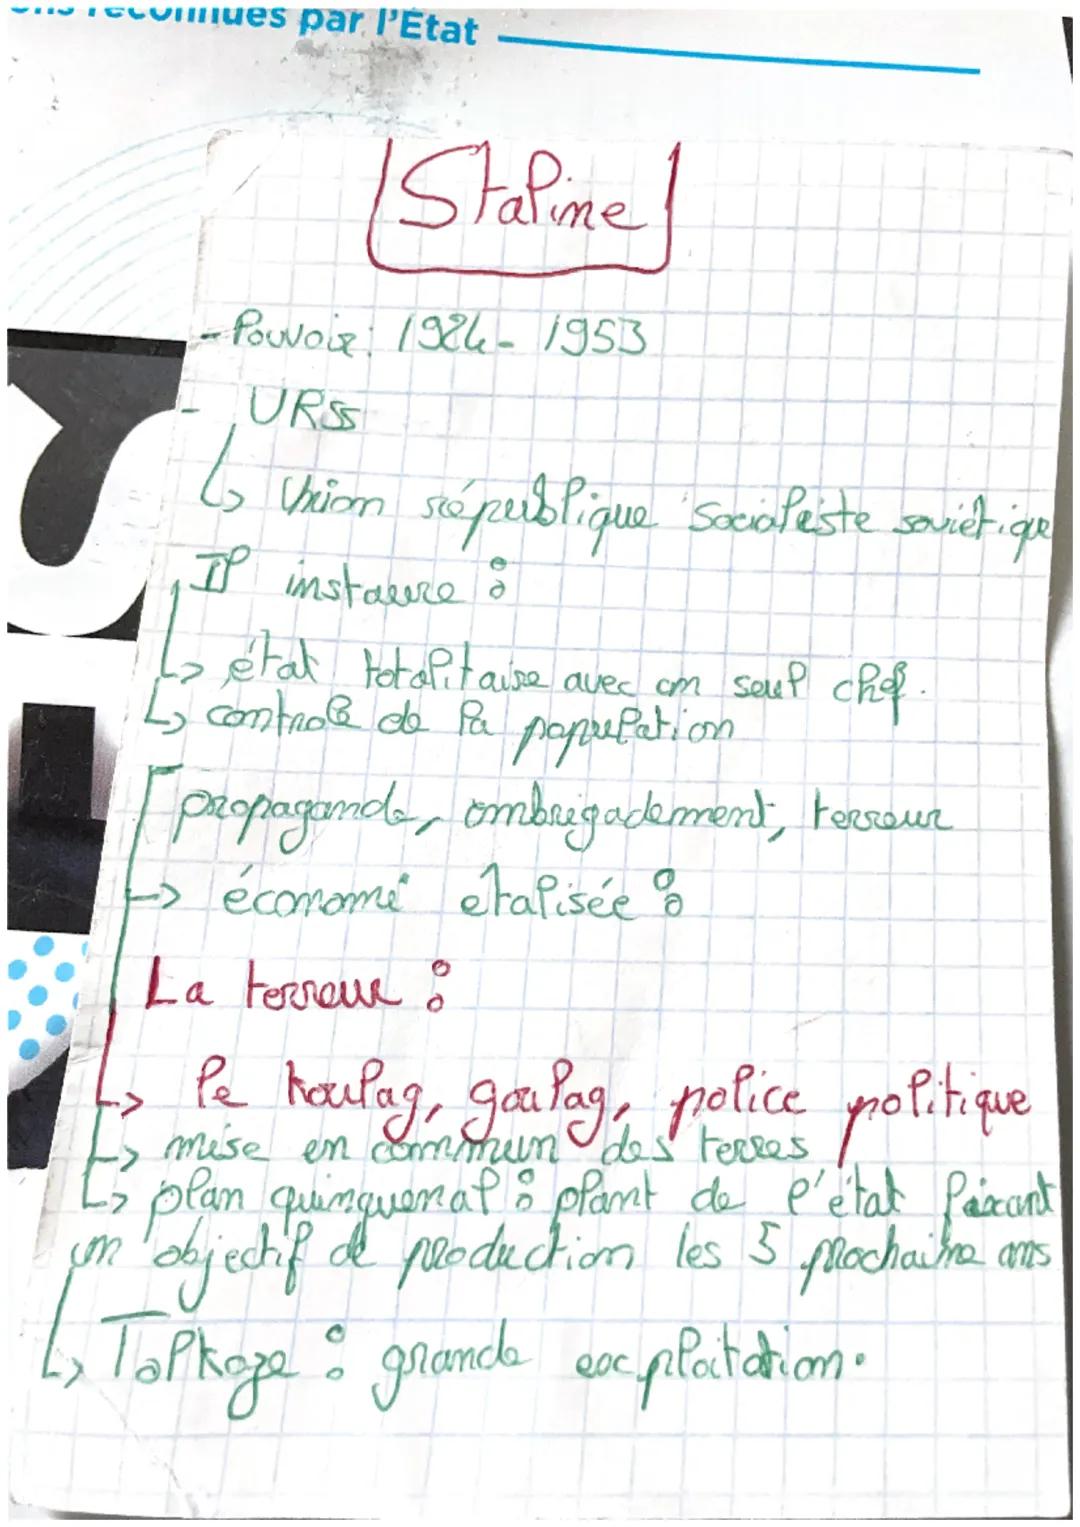 reconnues par l'État
Staline
- Pouvoir: 1924 - 1953
- URSS
↳ Union république socialiste soviétique
Il instaure :
↳ état totalitaire avec un seul chef.
↳ controle de la population
propagande, ombrigadement, terreur
→ économi etalisée :
La terreur :
↳ le koulag, goulag, police politique
↳ mise en commun des terres
↳ plan quinquenal : plant de l'état faixant
un objectif de production les 5 prochaine ans
↳ Tolkoze : grande excploitation.